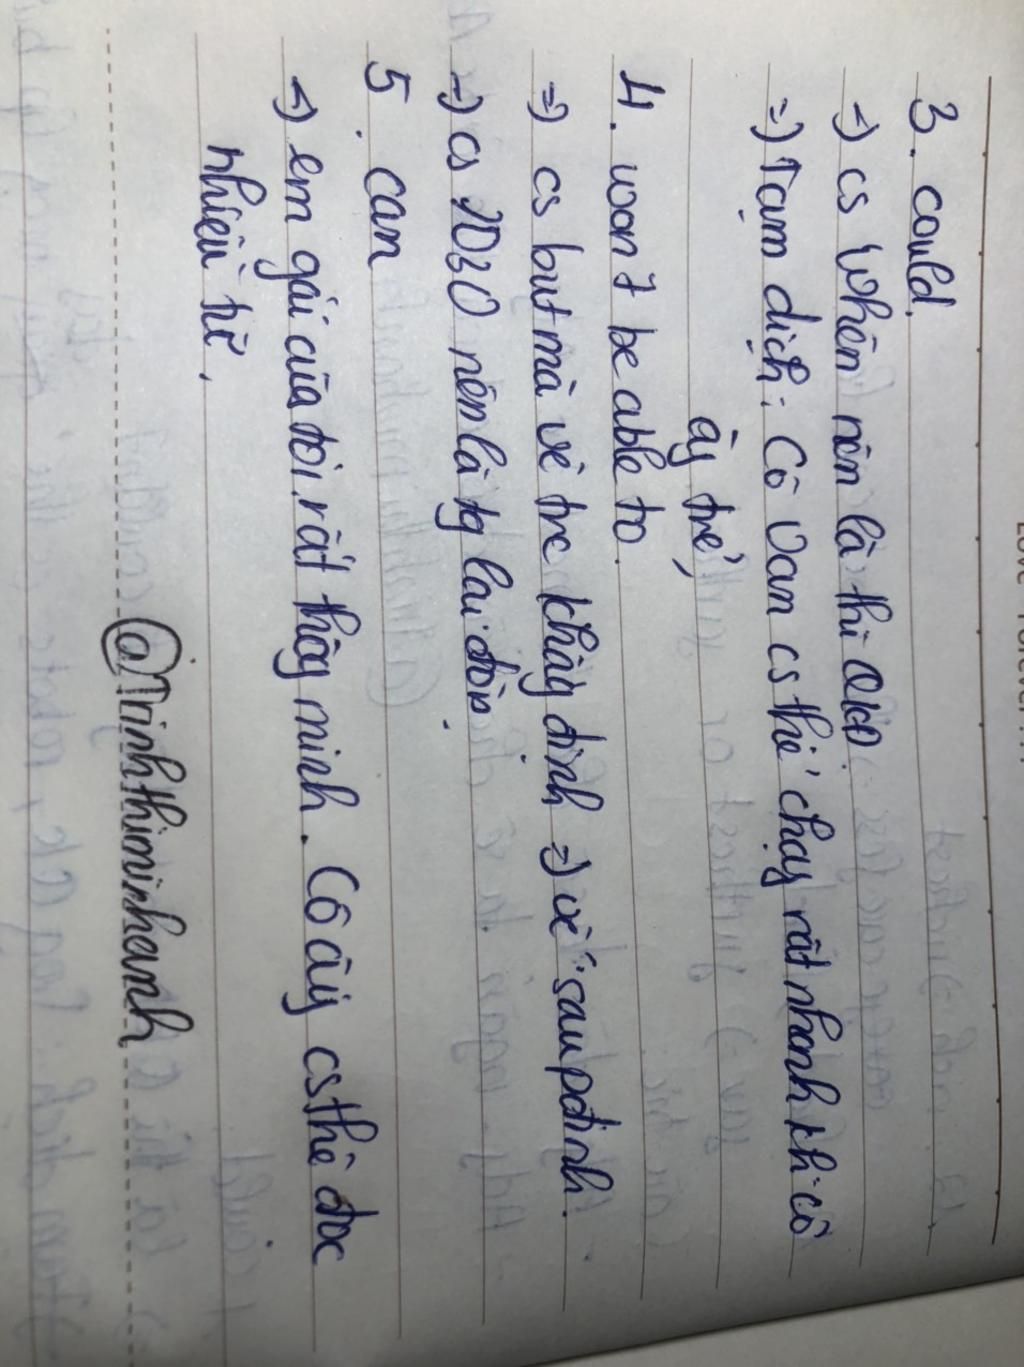 3. could.
→ cs When nên là thì QKĐ
⇒ Tạm dịch: Cô Van cs thể chạy rất nhanh khi cô
ấy trẻ,
4. won't be able to.
⇒ cs but mà vế trc khẳng định ⇒ vế sau pđịnh.
→ cs 2030 nên là tg lai đơn.
5. can
→ em gái của tôi rất thôg minh. Cô ấy cs thể đọc
nhiều từ.
@Trinhthiminhanh